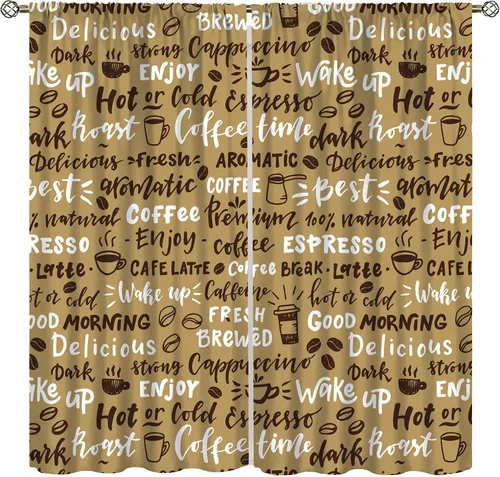 BREWED
Delicious Delicious
Dark strong Cappuccino Dark
Wake up ENJOY Wake up ENJOY
Hot or Cold Espresso Hot or Cold
dark Roast Coffee time dark Roast
Delicious fresh AROMATIC Delicious fresh
Best aromatic COFFEE Best aromatic
% natural Coffee Premium 100% natural Coffee
ESPRESSO - Enjoy - coffee ESPRESSO - Enjoy -
Latte · CAFE LATTE Coffee Break · Latte · CAFE LATTE
hot or cold Wake up Caffeine hot or cold Wake up
GOOD MORNING FRESH GOOD MORNING
BREWED
Delicious Delicious
Dark strong Cappuccino Dark strong
Wake up ENJOY Wake up ENJOY
Hot or Cold Espresso Hot or Cold
Roast Coffee time dark Roast